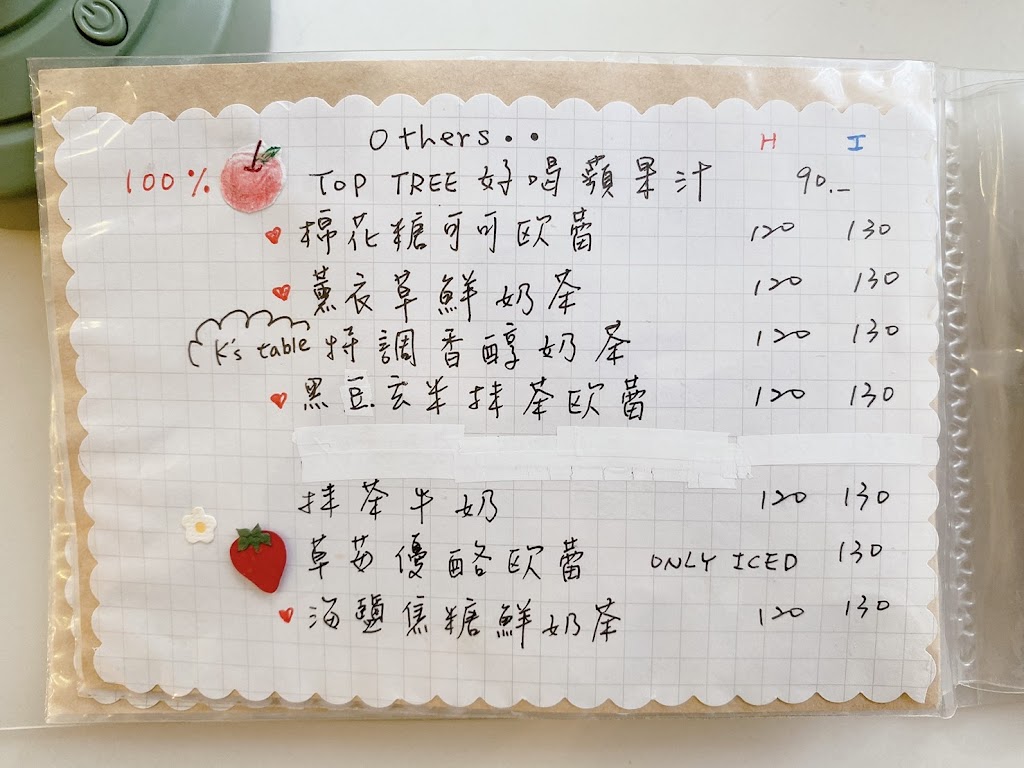 Others.. H I
100% TOP TREE 好喝蘋果汁 90.-
棉花糖可可欧蕾 120 130
薰衣草鮮奶茶 120 130
K's table 特調香醇奶茶 120 130
黑豆玄米抹茶欧蕾 120 130
抹茶牛奶 120 130
草莓優酪欧蕾 ONLY ICED 130
海鹽焦糖鮮奶茶 120 130